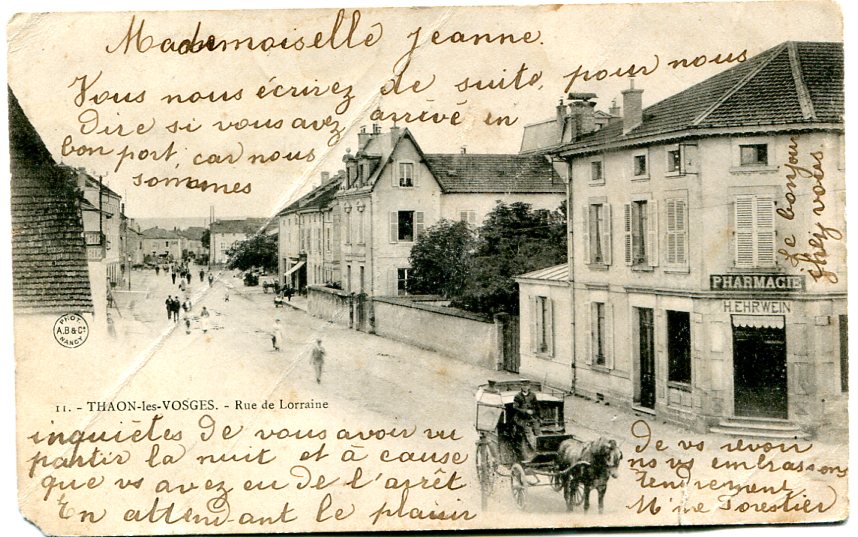 Mademoiselle Jeanne.
Vous nous écrirez de suite, pour nous
dire si vous avez arrêvé en
bon port, car nous
sommes
Le bonjour
chez vous.
PHARMACIE
H. EHRWEIN
PHOT.
A.B & Cie
NANCY
11. - THAON-les-VOSGES. - Rue de Lorraine
inquiètes de vous avoir vu
partir la nuit et à cause
que vs avez eu de l'arrêt
En attendant le plaisir
de vs revoir
ns vs embrassons
tendrement
Forestier